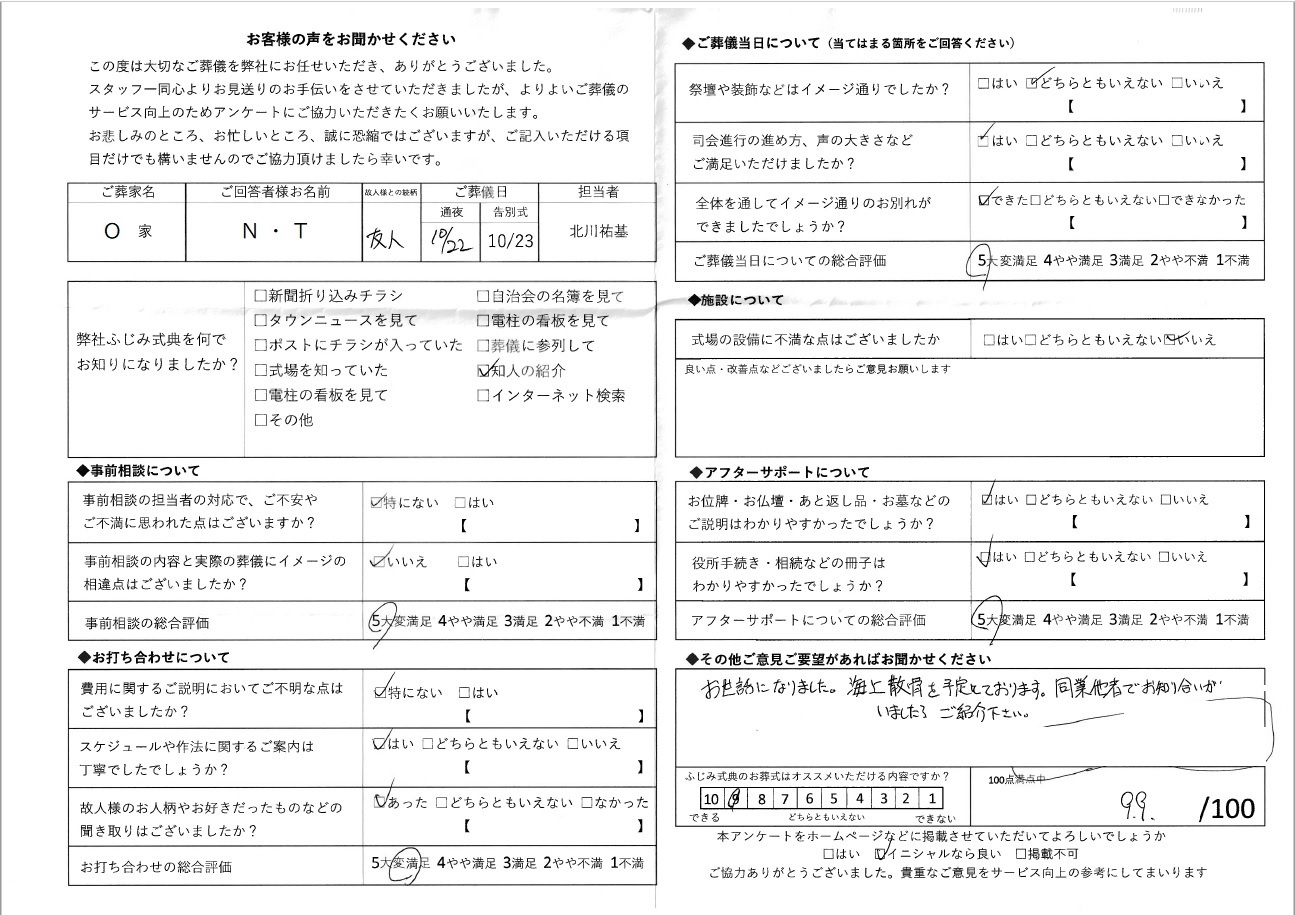 お客様の声をお聞かせください
この度は大切なご葬儀を弊社にお任せいただき、ありがとうございました。
スタッフ一同心よりお見送りのお手伝いをさせていただきましたが、よりよいご葬儀の
サービス向上のためアンケートにご協力いただきたくお願いいたします。
お悲しみのところ、お忙しいところ、誠に恐縮ではございますが、ご記入いただける項
目だけでも構いませんのでご協力頂けましたら幸いです。
ご葬家名 ご回答者様お名前 故人様との続柄 ご葬儀日 担当者
通夜 告別式
O 家 N・T 友人 10/22 10/23 北川祐基
弊社ふじみ式典を何で
お知りになりましたか？
□新聞折り込みチラシ □自治会の名簿を見て
□タウンニュースを見て □電柱の看板を見て
□ポストにチラシが入っていた □葬儀に参列して
□式場を知っていた ☑知人の紹介
□電柱の看板を見て □インターネット検索
□その他
◆事前相談について
事前相談の担当者の対応で、ご不安や
ご不満に思われた点はございますか？
☑特にない □はい
【 】
事前相談の内容と実際の葬儀にイメージの
相違点はございましたか？
☑いいえ □はい
【 】
事前相談の総合評価 5大変満足 4やや満足 3満足 2やや不満 1不満
◆お打ち合わせについて
費用に関するご説明においてご不明な点は
ございましたか？
☑特にない □はい
【 】
スケジュールや作法に関するご案内は
丁寧でしたでしょうか？
☑はい □どちらともいえない □いいえ
【 】
故人様のお人柄やお好きだったものなどの
聞き取りはございましたか？
☑あった □どちらともいえない □なかった
【 】
お打ち合わせの総合評価 5大変満足 4やや満足 3満足 2やや不満 1不満
◆ご葬儀当日について（当てはまる箇所をご回答ください）
祭壇や装飾などはイメージ通りでしたか？
□はい ☑どちらともいえない □いいえ
【 】
司会進行の進め方、声の大きさなど
ご満足いただけましたか？
☑はい □どちらともいえない □いいえ
【 】
全体を通してイメージ通りのお別れが
できましたでしょうか？
☑できた□どちらともいえない□できなかった
【 】
ご葬儀当日についての総合評価 5大変満足 4やや満足 3満足 2やや不満 1不満
◆施設について
式場の設備に不満な点はございましたか □はい□どちらともいえない☑いいえ
良い点・改善点などございましたらご意見お願いします
◆アフターサポートについて
お位牌・お仏壇・あと返し品・お墓などの
ご説明はわかりやすかったでしょうか？
☑はい □どちらともいえない □いいえ
【 】
役所手続き・相続などの冊子は
わかりやすかったでしょうか？
☑はい □どちらともいえない □いいえ
【 】
アフターサポートについての総合評価 5大変満足 4やや満足 3満足 2やや不満 1不満
◆その他ご意見ご要望があればお聞かせください
お世話になりました。海上散骨を予定しております。同業他者でお知り合いが
いましたら ご紹介下さい。
ふじみ式典のお葬式はオススメいただける内容ですか？
10 9 8 7 6 5 4 3 2 1
できる どちらともいえない できない
100点満点中
99. /100
本アンケートをホームページなどに掲載させていただいてよろしいでしょうか
□はい ☑イニシャルなら良い □掲載不可
ご協力ありがとうございました。貴重なご意見をサービス向上の参考にしてまいります